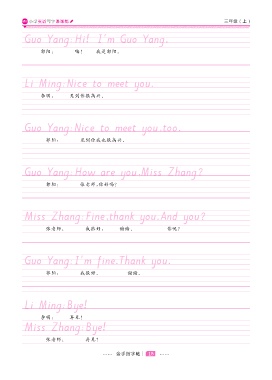 三年级(上)
Guo Yang:Hi! I'm Guo Yang.
郭阳: 嗨! 我是郭阳。
Li Ming:Nice to meet you.
李明: 见到你很高兴。
Guo Yang:Nice to meet you,too.
郭阳: 见到你我也很高兴。
Guo Yang:How are you,Miss Zhang?
郭阳: 张老师,你好吗?
Miss Zhang:Fine,thank you.And you?
张老师: 我很好, 谢谢。 你呢?
Guo Yang:I'm fine.Thank you.
郭阳: 我很好。 谢谢。
Li Ming:Bye!
李明: 再见!
Miss Zhang:Bye!
张老师: 再见!